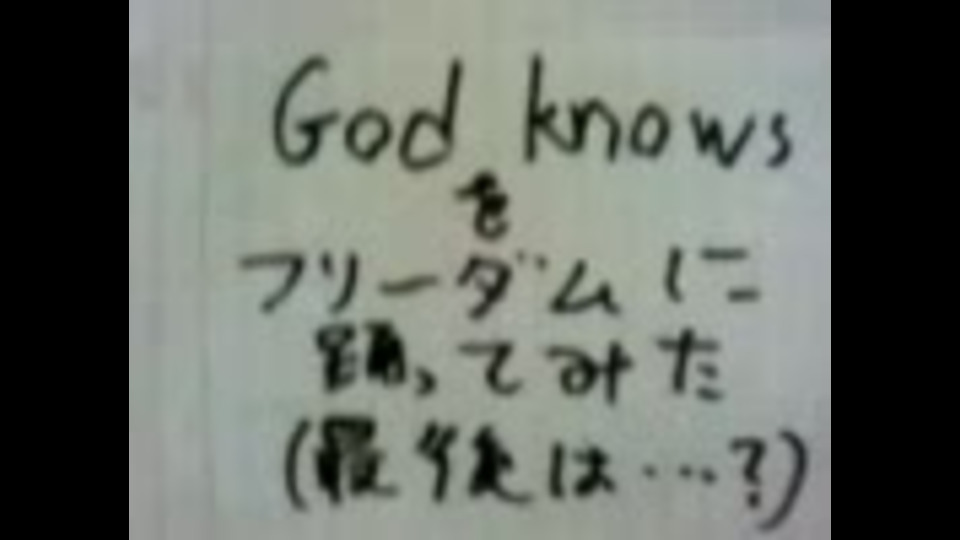 God knows
を
フリーダムに
踊ってみた
(最後は…?)